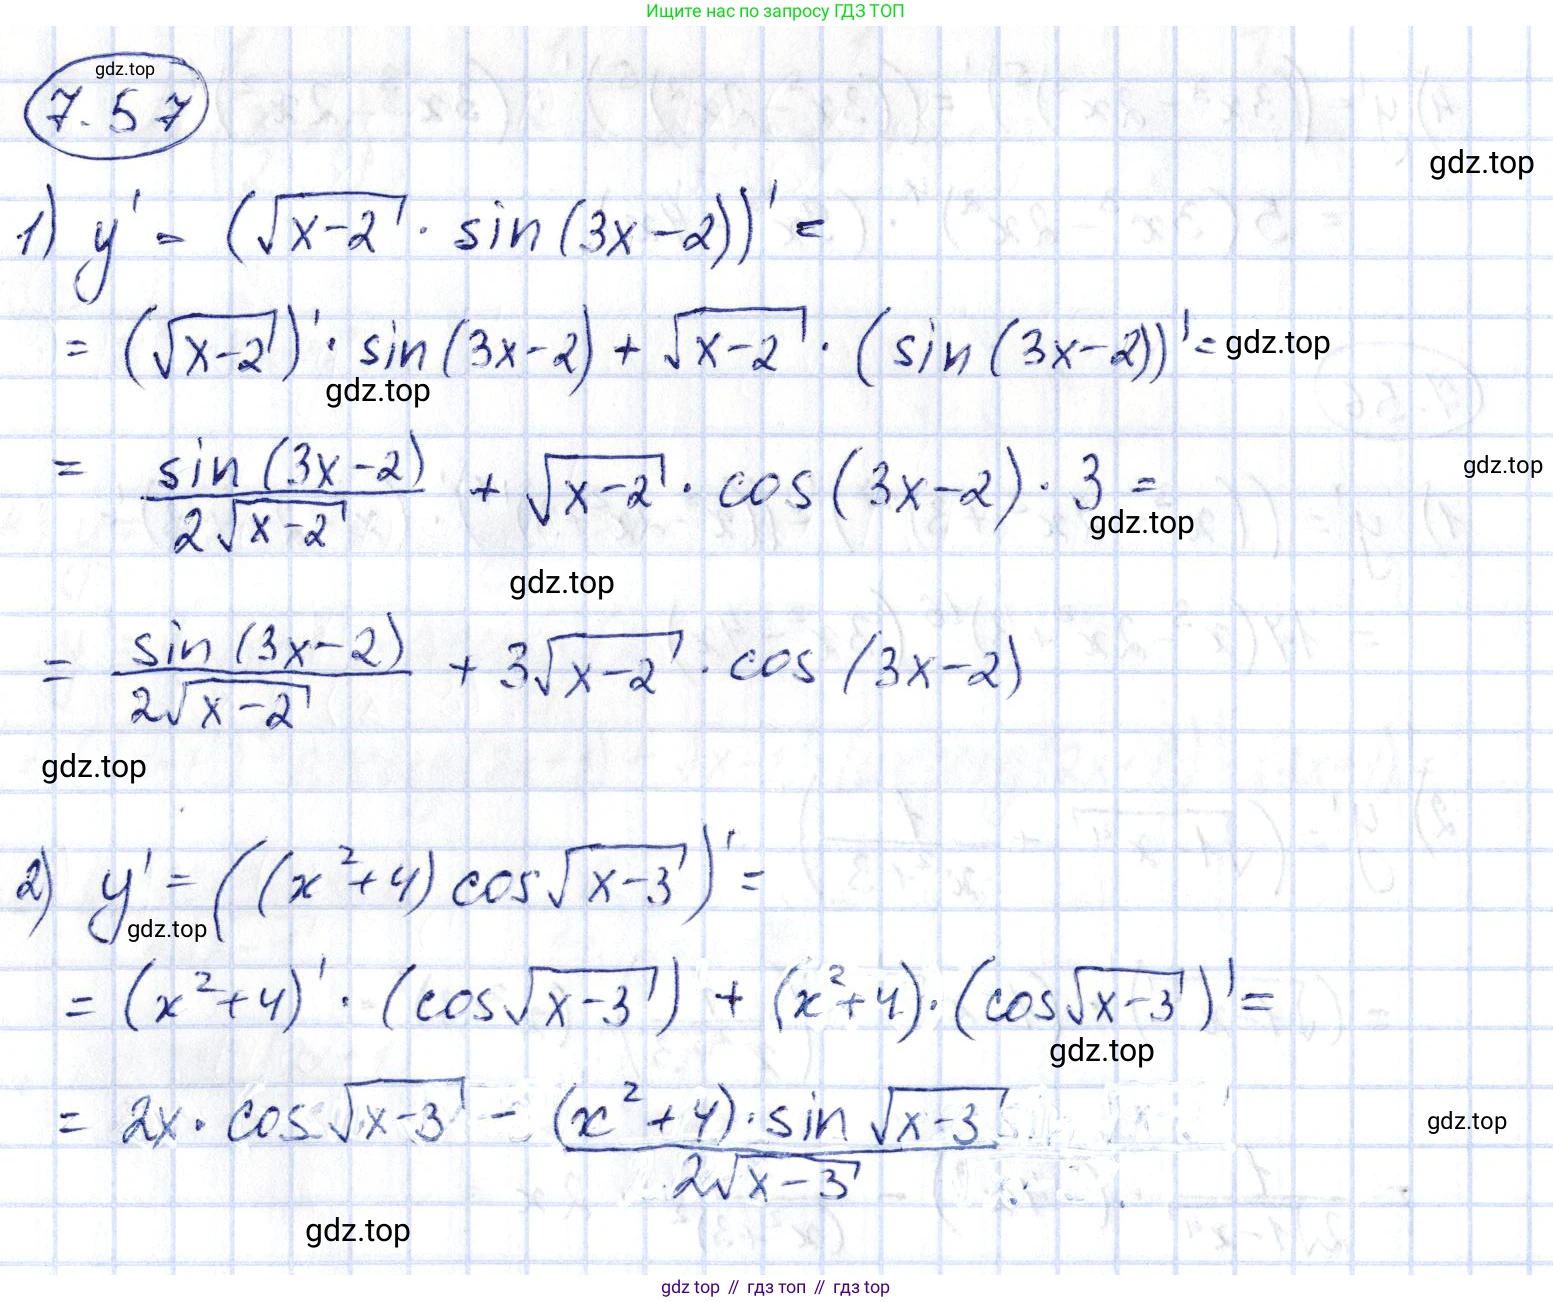 Ищите нас по запросу ГДЗ ТОП
gdz.top
7.57
gdz.top
1) y' = (√(x-2) · sin(3x-2))' =
= (√(x-2))' · sin(3x-2) + √(x-2) · (sin(3x-2))' = gdz.top
gdz.top
= sin(3x-2) / 2√(x-2) + √(x-2) · cos(3x-2) · 3 =
gdz.top
gdz.top
gdz.top
= sin(3x-2) / 2√(x-2) + 3√(x-2) · cos(3x-2)
gdz.top
2) y' = ((x²+4) cos√(x-3))' =
gdz.top
= (x²+4)' · (cos√(x-3)) + (x²+4) · (cos√(x-3))' =
gdz.top
= 2x · cos√(x-3) - (x²+4) · sin√(x-3) / 2√(x-3)
gdz.top
gdz.top
gdz.top // гдз топ // гдз top